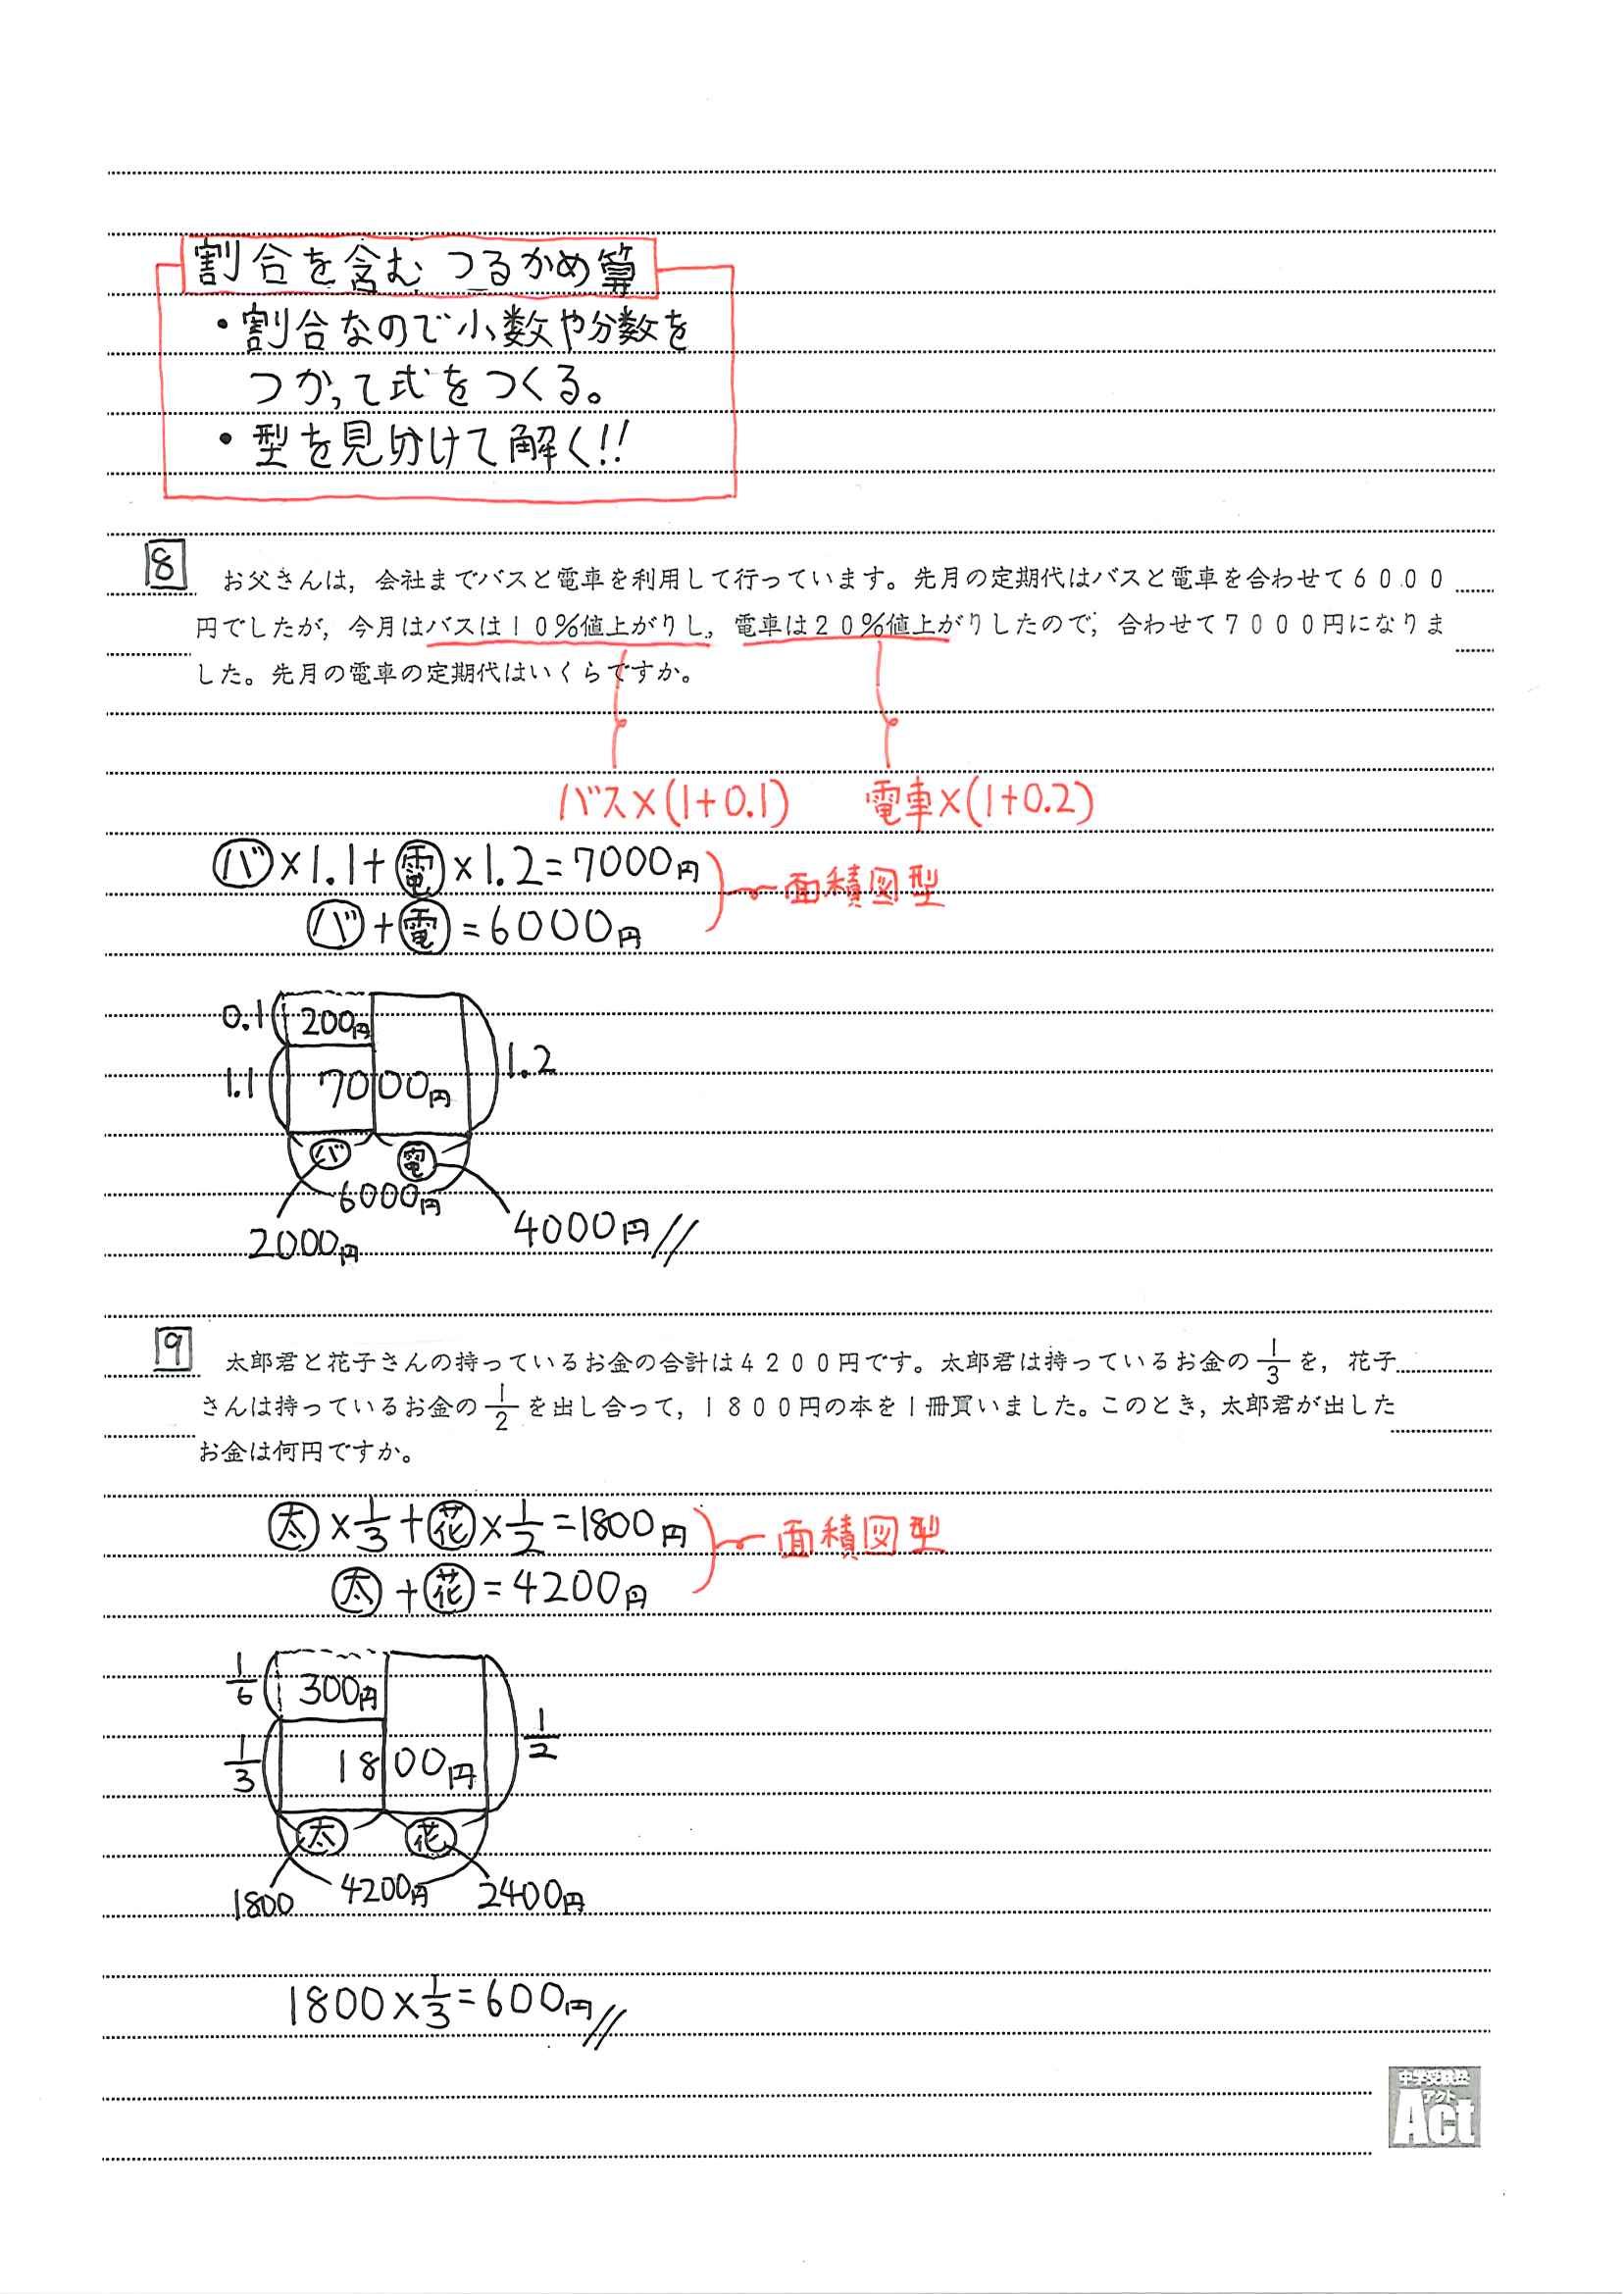 割合を含む つるかめ算
・割合なので小数や分数を
つかって式をつくる。
・型を見分けて解く!!
8
お父さんは，会社までバスと電車を利用して行っています。先月の定期代はバスと電車を合わせて６０００
円でしたが，今月はバスは１０％値上がりし，電車は２０％値上がりしたので，合わせて７０００円になりま
した。先月の電車の定期代はいくらですか。
バス×(1+0.1) 電車×(1+0.2)
バ×1.1+電×1.2=7000円
面積図型
バ+電=6000円
0.1 200円
1.2
1.1 7000円
バ 電
6000円
2000円 4000円
9
太郎君と花子さんの持っているお金の合計は４２００円です。太郎君は持っているお金の1/3を，花子
さんは持っているお金の1/2を出し合って，１８００円の本を１冊買いました。このとき，太郎君が出した
お金は何円ですか。
太×1/3+花×1/2=1800円
面積図型
太+花=4200円
1/6 300円
1/2
1/3 1800円
太 花
1800 4200円 2400円
1800×1/3=600円
中学受験塾
アクト
Act